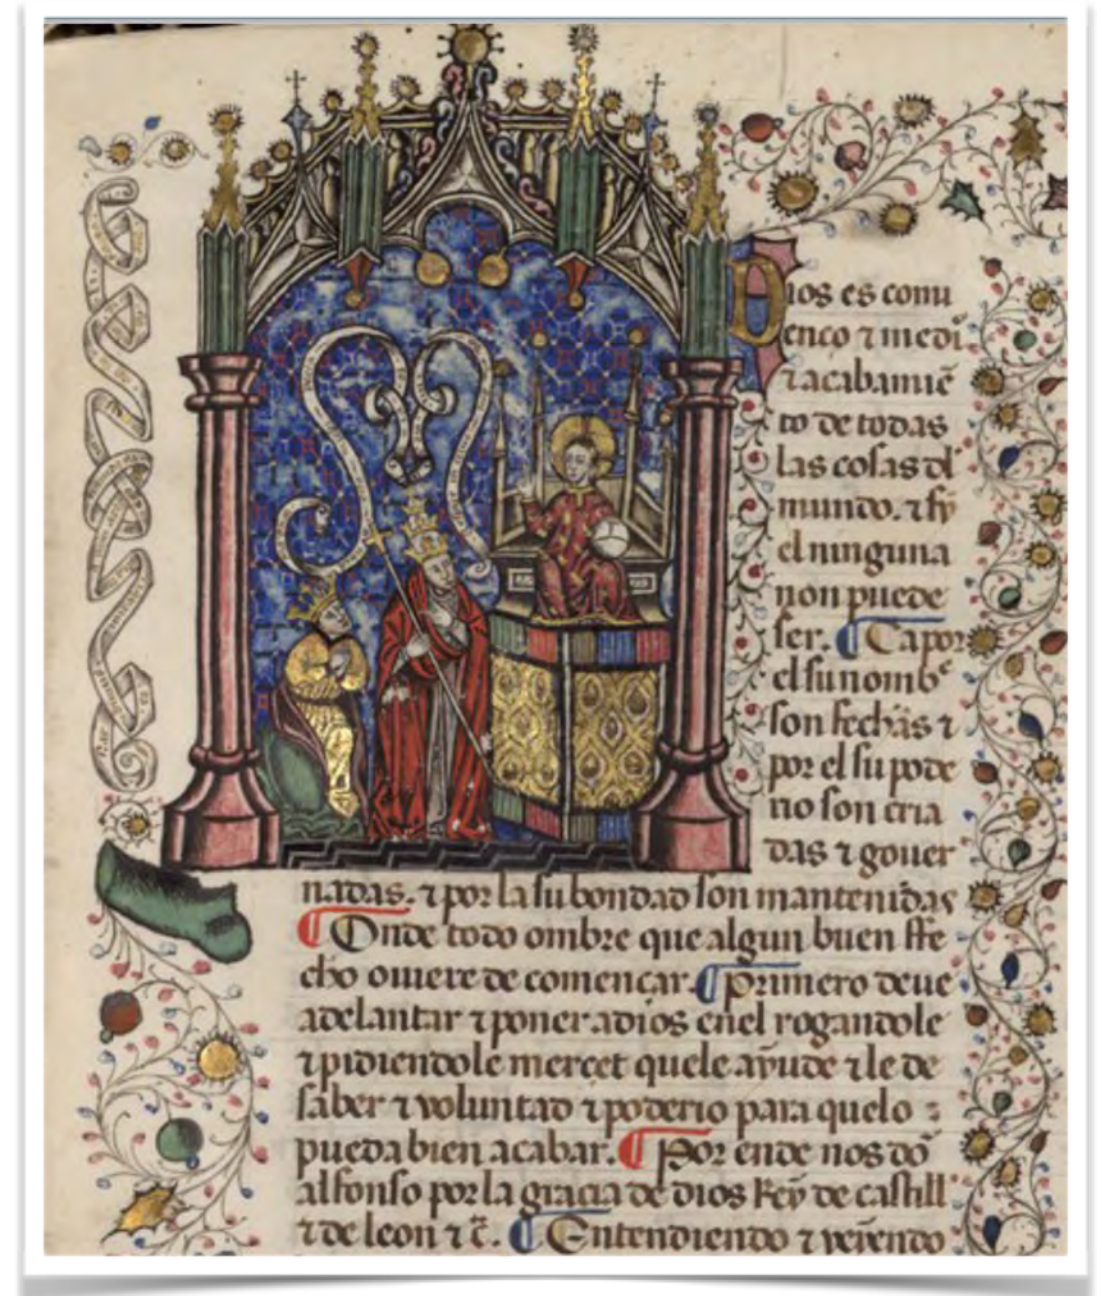 Dios es comi
enço ⁊ medi
⁊ acabamiẽ
to de todas
las cosas dl'
mundo. ⁊ sy
el ninguna
non puede
ser. ¶ Ca por
el su nomb^e
son fechas ⁊
por el su pode
rio son cria
das ⁊ gouer
nadas. ⁊ por la su bondad son mantenidas
¶ Onde todo ombre que algun buen ffe
cho ouiere de començar. ¶ Primero deue
adelantar ⁊ poner a dios enel rogandole
⁊ pidiendole mercet quele ayude ⁊ le de
saber ⁊ voluntad ⁊ poderio para quelo
pueda bien acabar. ¶ Por ende nos dõ
alfonso por la gracia de dios Rey de castill'
⁊ de leon ⁊ c̃. ¶ Entendiendo ⁊ veyendo